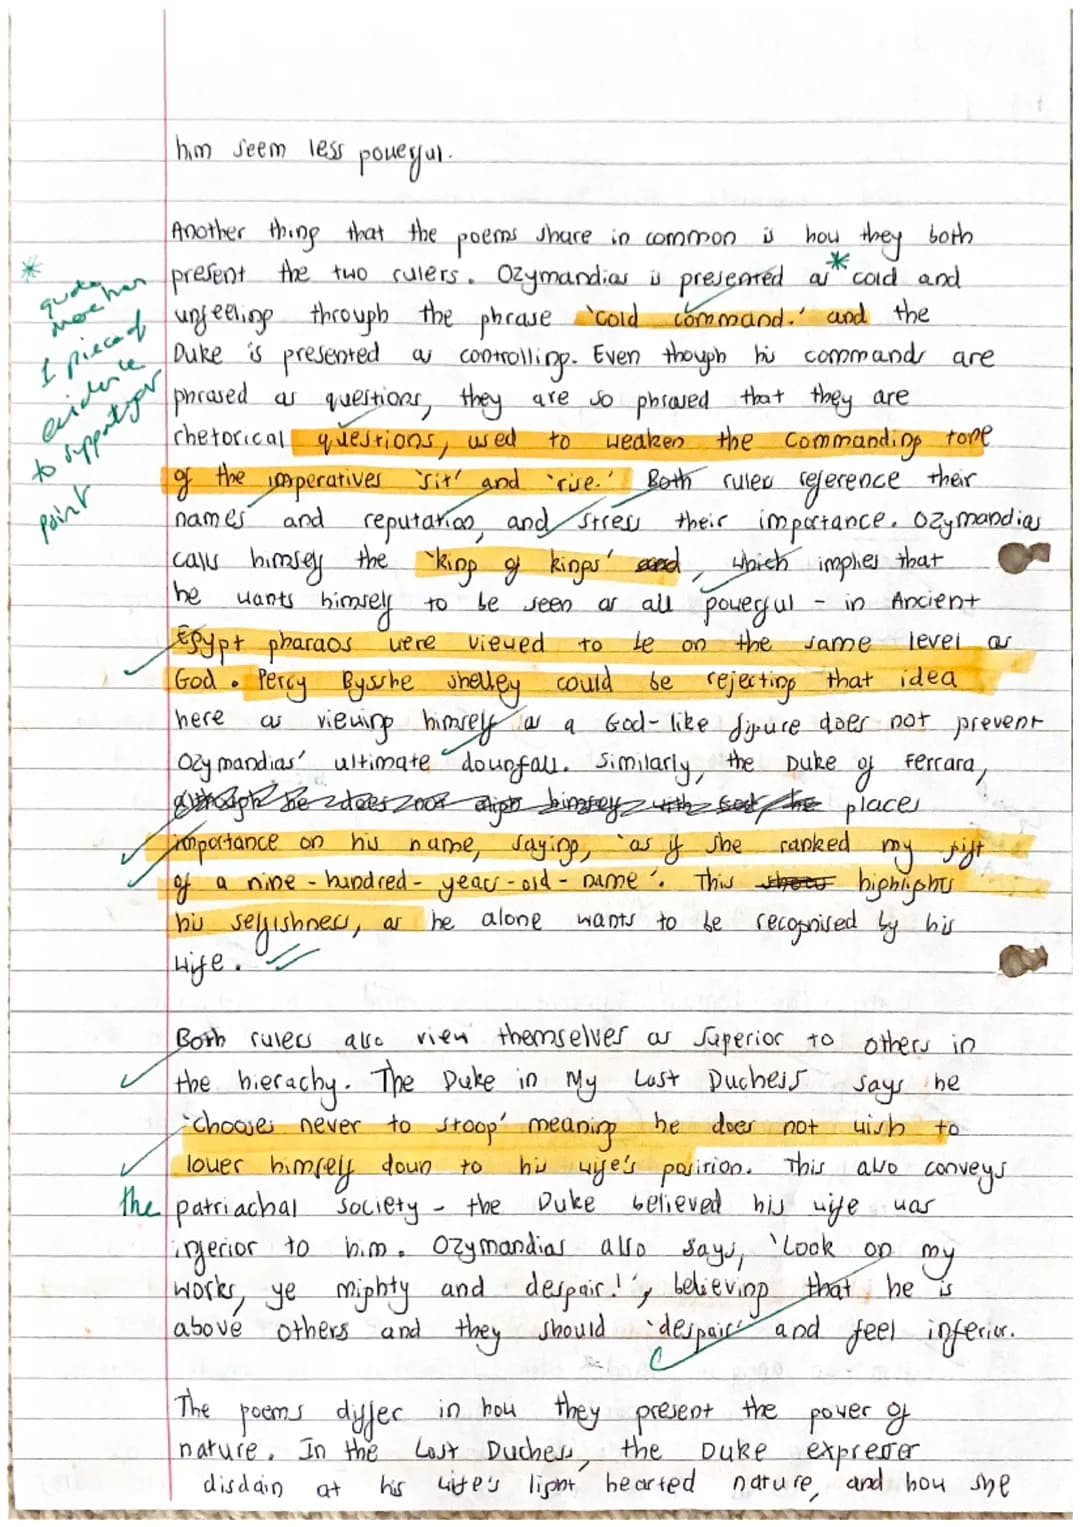 him seem less powerful.
Another thing that the poems share in common is how they both
present the two rulers. Ozymandias is presented as * cold and
unfeeling through the phrase 'cold command.' and the
Duke is presented as controlling. Even though his commands are
phrased as questions, they are so phrased that they are
rhetorical questions, used to weaken the commanding tone
of the imperatives 'sit' and 'rise.' Both rulers reference their
names and reputation, and stress their importance. Ozymandias
calls himself the 'king of kings' and, which implies that
he wants himself to be seen as all powerful - in Ancient
Egypt pharaos were viewed to be on the same level as
God. Percy Bysshe Shelley could be rejecting that idea
here as viewing himself as a God-like figure does not prevent
Ozymandias' ultimate downfall. Similarly, the Duke of Ferrara,
although he does not align himself with God, he places
importance on his name, saying, 'as if she ranked my gift
of a nine-hundred-years-old-name'. This shows highlights
his selfishness, as he alone wants to be recognised by his
wife.
Both rulers also view themselves as superior to others in
the hierachy. The Duke in My Last Duchess says he
'chooses never to stoop' meaning he does not wish to
lower himself down to his wife's position. This also conveys
the patriachal society - the Duke believed his wife was
inferior to him. Ozymandias also says, 'Look on my
works, ye mighty and despair!', believing that he is
above others and they should 'despair' and feel inferior.
The poems differ in how they present the power of
nature. In the Last Duchess, the Duke expresses
disdain at his wife's light hearted nature, and how she
*
quote
more than
1 piece of
evidence
to support your
point